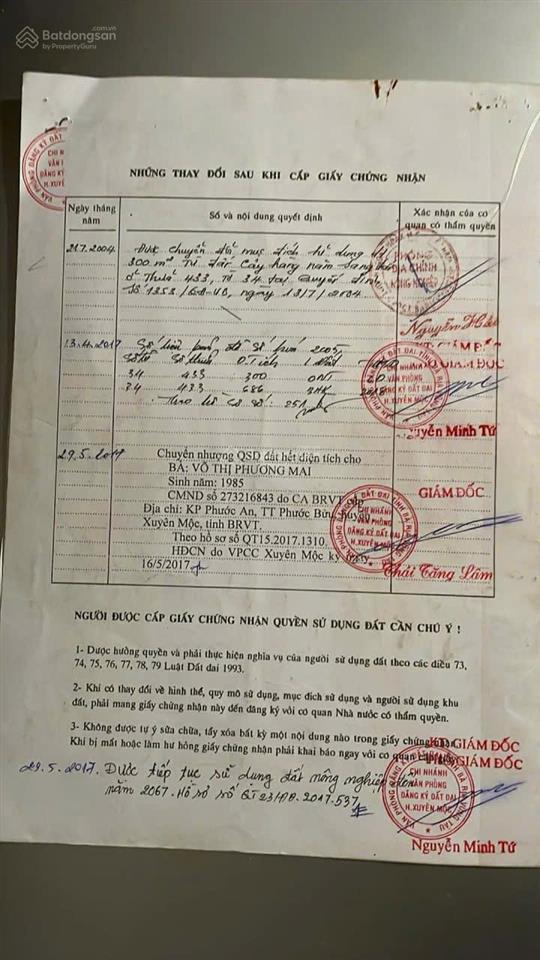 Batdongsan
by PropertyGuru
NHỮNG THAY ĐỔI SAU KHI CẤP GIẤY CHỨNG NHẬN
Ngày tháng năm
Số và nội dung quyết định
Xác nhận của cơ quan có thẩm quyền
21.7.2004
Được chuyển đổi mục đích sử dụng
300 m² từ đất cây hàng năm sang
ở thửa 433, tờ 34 tại quyết định
số 1353/QĐ-UB, ngày 13/7/2004
PHÒNG
ĐỊA CHÍNH
13.4.2017
Số hiệu bản đồ số 2005
Số tờ Số thửa D.Tích
34 433 300 ONT
34 433 686
Theo hồ sơ số: 251
GIÁM ĐỐC
CHI NHÁNH
VĂN PHÒNG
ĐĂNG KÝ ĐẤT ĐAI
H.XUYÊN MỘC
Nguyễn Minh Tứ
29.5.2017
Chuyển nhượng QSD đất hết diện tích cho
BÀ: VÕ THỊ PHƯƠNG MAI
Sinh năm: 1985
CMND số 273216843 do CA BRVT
Địa chỉ: KP Phước An, TT Phước Bửu, huyện
Xuyên Mộc, tỉnh BRVT.
Theo hồ sơ số QT15.2017.1310.
HĐCN do VPCC Xuyên Mộc ký ngày
16/5/2017
GIÁM ĐỐC
CHI NHÁNH
VĂN PHÒNG
ĐĂNG KÝ ĐẤT ĐAI
H.XUYÊN MỘC
Thái Tăng Lâm
NGƯỜI ĐƯỢC CẤP GIẤY CHỨNG NHẬN QUYỀN SỬ DỤNG ĐẤT CẦN CHÚ Ý !
1- Được hưởng quyền và phải thực hiện nghĩa vụ của người sử dụng đất theo các điều 73,
74, 75, 76, 77, 78, 79 Luật Đất đai 1993.
2- Khi có thay đổi về hình thể, quy mô sử dụng, mục đích sử dụng và người sử dụng khu
đất, phải mang giấy chứng nhận này đến đăng ký với cơ quan Nhà nước có thẩm quyền.
3- Không được tự ý sửa chữa, tẩy xóa bất kỳ một nội dung nào trong giấy chứng
Khi bị mất hoặc làm hư hỏng giấy chứng nhận phải khai báo ngay với cơ quan
GIÁM ĐỐC
GIÁM ĐỐC
29.5.2017. Được tiếp tục sử dụng đất nông nghiệp đến
năm 2067. Hồ sơ số 2017.537
CHI NHÁNH
VĂN PHÒNG
ĐĂNG KÝ ĐẤT ĐAI
H.XUYÊN MỘC
Nguyễn Minh Tứ